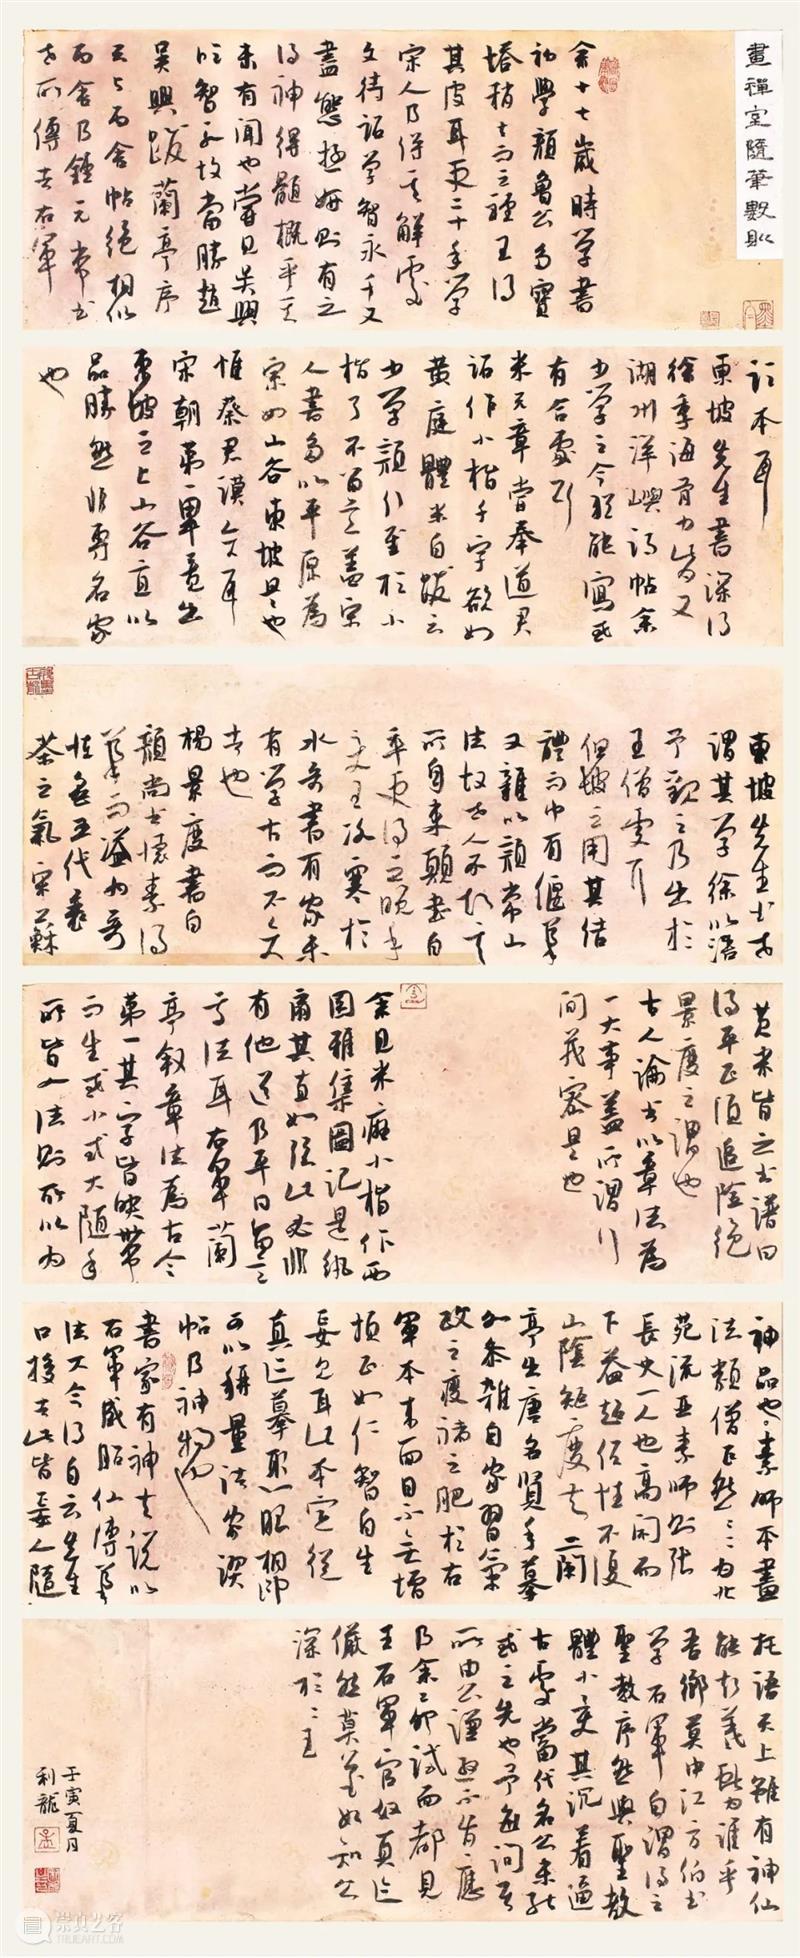 畫禪室隨筆數則
余十七歲時學書
初學顏魯公多寶
塔稍去而之鍾王得
其皮耳更二十年學
宋人乃得其解處
文待詔學智永千文
盡態極妍則有之
得神得髓概乎其
未有聞也嘗見吳興
臨智永故當勝趙
吳興跋蘭亭序
云與丙舍帖絕相似
丙舍乃鍾元常書
世所傳者右軍
臨本耳
東坡先生書深得
徐季海骨力此文
湖州洋嶼詩帖余
少學之今猶能寫或
有合處耳
米元章嘗奉道君
詔作小楷千字欲如
黃庭體米自跋云
少學顏行至於小
楷了不留意蓋宋
人書多以平原為
宗如山谷東坡是也
惟蔡君謨少變耳
宋朝第一畢竟出
東坡之上山谷直以
品勝然非專名家
也
東坡先生書世
謂其學徐浩以
予觀之乃出於
王僧虔耳
但坡之用其結
體而中有偃筆
又雜以顏常山
法故世人不知其
所自來顛書自
率更得之晚年
一變有冰寒於
水奇書有家未
有學古而不變
者也
楊景度書自
顏尚書懷素得
筆而溢為奇
怪無五代衰
茶之氣宋蘇
黃米皆之書譜曰
得平正須追險絕
景度之謂也
古人論書以章法為
一大事蓋所謂行
間茂密是也
余見米癡小楷作西
園雅集圖記是紈
扇其直如弦此必非
有他道乃平日留意
章法耳右軍蘭
亭敘章法為古今
第一其字皆映帶
而生或小或大隨手
所皆入法則所以為
神品也素師本畫
法類僧巨然巨然為北
苑流亞素師則張
長史一人也高閑而
下益趨俗怪不復
山陰矩度矣二蘭
亭出唐名賢手摹
各參雜自家習氣
歐之瘦褚之肥於右
軍本來面目不無增
損正如仁智自生
妄見耳此本定從
真跡摹取心眼相印
可以稱量諸家禊
帖乃神物也
書家有神其說以
右軍感昭仙傳筆
法又今得白云先生
口授者此皆妄人隨
托語天上雖有神仙
能知羲獻為誰乎
吾鄉莫中江方伯書
學右軍自謂得之
聖教序然與聖教
體小異其沉着逼
古處當代名公未能
或之先也予每詢其
所由公謙遜不肯應
及余己卯試而都見
王右軍官奴真跡
儼然莫公書始知公
深於二王
壬寅夏月
利龍